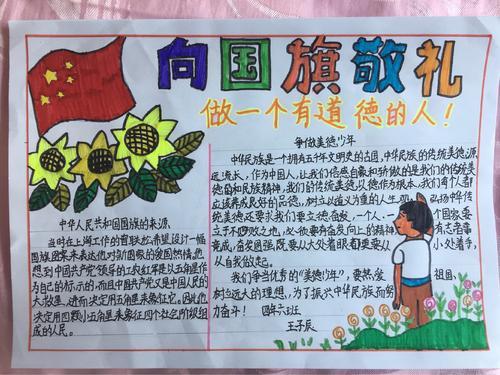 向国旗敬礼
做一个有道德的人！
中华人民共和国国旗的来源
当时在上海工作的曾联松希望设计一幅
国旗图案来表达他对新国家的爱国热情。他
想到中国共产党领导的工农红军是以五角星作
为自己的标示的，而且中国共产党又是中国人民的
大救星，进而决定用五星来象征它。因此他
决定用四颗小五角星来象征四个社会阶级组
成的人民。
争做美德少年
中华民族是一个拥有五千年文明史的古国，中华民族的传统美德源
远流长，作为中国人，让我们倍感自豪和骄傲的是我们的传统美
德和民族精神，我们的传统美德以德作为根本，我们每个人都
应该养成良好的品德，树立以道义为重的人生观。弘扬中华传
统美德还要求我们要立德奋发，一个人、一个国家要
立于不败之地，必依要有奋发向上的精神，有志者事
竟成，奋发图强，既要从大处着眼着更要从小处着手，
从自我做起。
我们争当优秀的“美德少年”，要热爱祖国，
树立远大的理想，为了振兴中华民族而努
力奋斗！ 四年六班
王子辰